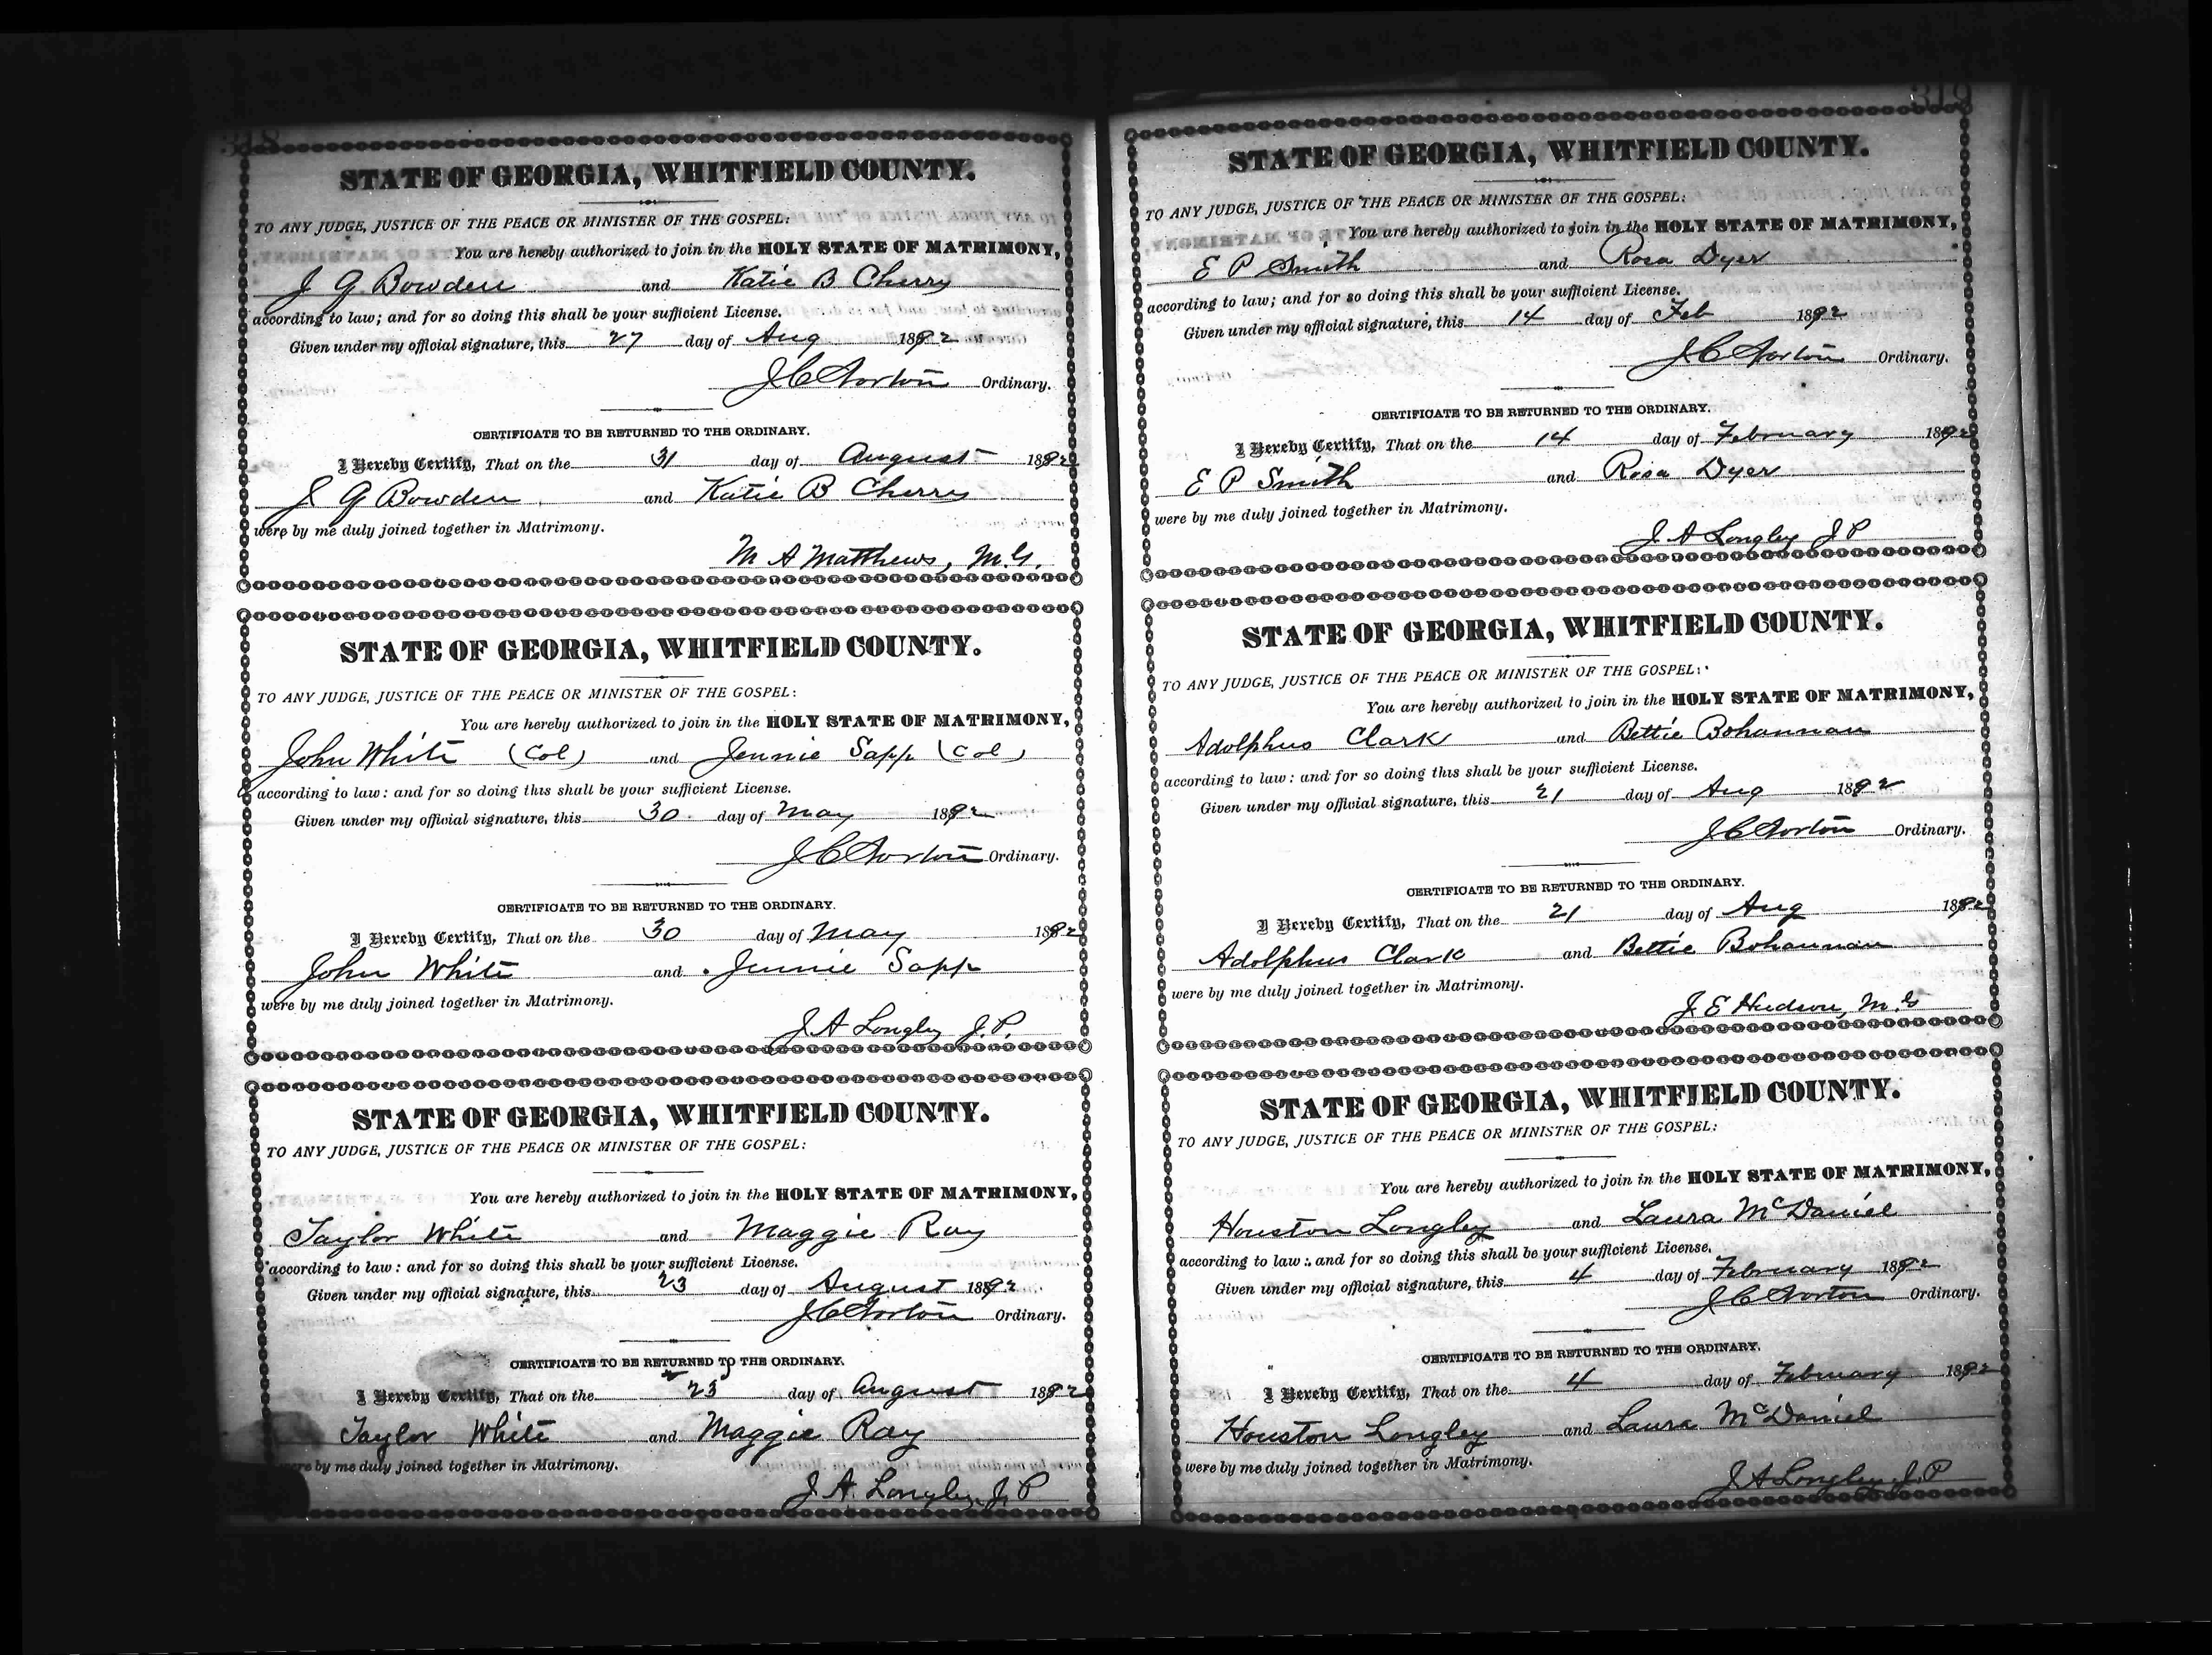 318
STATE OF GEORGIA, WHITFIELD COUNTY.
TO ANY JUDGE, JUSTICE OF THE PEACE OR MINISTER OF THE GOSPEL:
You are hereby authorized to join in the HOLY STATE OF MATRIMONY,
J G Bowden and Katie B Cherry
according to law; and for so doing this shall be your sufficient License.
Given under my official signature, this 27 day of Aug 1892
J C Norton Ordinary.
CERTIFICATE TO BE RETURNED TO THE ORDINARY.
I Hereby Certify, That on the 31 day of August 1892
J G Bowden and Katie B Cherry
were by me duly joined together in Matrimony.
M A Matthews, M.G.
STATE OF GEORGIA, WHITFIELD COUNTY.
TO ANY JUDGE, JUSTICE OF THE PEACE OR MINISTER OF THE GOSPEL:
You are hereby authorized to join in the HOLY STATE OF MATRIMONY,
John White (Col) and Jennie Sapp (Col)
according to law: and for so doing this shall be your sufficient License.
Given under my official signature, this 30 day of May 1892
J C Norton Ordinary.
CERTIFICATE TO BE RETURNED TO THE ORDINARY.
I Hereby Certify, That on the 30 day of May 1892
John White and Jennie Sapp
were by me duly joined together in Matrimony.
J. A Longley J. P.
STATE OF GEORGIA, WHITFIELD COUNTY.
TO ANY JUDGE, JUSTICE OF THE PEACE OR MINISTER OF THE GOSPEL:
You are hereby authorized to join in the HOLY STATE OF MATRIMONY,
Taylor White and Maggie Ray
according to law: and for so doing this shall be your sufficient License.
Given under my official signature, this 23 day of August 1892
J C Norton Ordinary.
CERTIFICATE TO BE RETURNED TO THE ORDINARY.
I Hereby Certify, That on the 23 day of August 1892
Taylor White and Maggie Ray
were by me duly joined together in Matrimony.
J. A. Longley J. P
319
STATE OF GEORGIA, WHITFIELD COUNTY.
TO ANY JUDGE, JUSTICE OF THE PEACE OR MINISTER OF THE GOSPEL:
You are hereby authorized to join in the HOLY STATE OF MATRIMONY,
E P Smith and Rosa Dyer
according to law; and for so doing this shall be your sufficient License.
Given under my official signature, this 14 day of Feb 1892
J C Norton Ordinary.
CERTIFICATE TO BE RETURNED TO THE ORDINARY.
I Hereby Certify, That on the 14 day of February 1892
E P Smith and Rosa Dyer
were by me duly joined together in Matrimony.
J. A Longley J P
STATE OF GEORGIA, WHITFIELD COUNTY.
TO ANY JUDGE, JUSTICE OF THE PEACE OR MINISTER OF THE GOSPEL:
You are hereby authorized to join in the HOLY STATE OF MATRIMONY,
Adolphus Clark and Bettie Bohannan
according to law: and for so doing this shall be your sufficient License.
Given under my official signature, this 21 day of Aug 1892
J C Norton Ordinary.
CERTIFICATE TO BE RETURNED TO THE ORDINARY.
I Hereby Certify, That on the 21 day of Aug 1892
Adolphus Clark and Bettie Bohannan
were by me duly joined together in Matrimony.
J. E Hudson, M.G
STATE OF GEORGIA, WHITFIELD COUNTY.
TO ANY JUDGE, JUSTICE OF THE PEACE OR MINISTER OF THE GOSPEL:
You are hereby authorized to join in the HOLY STATE OF MATRIMONY,
Houston Longley and Laura McDaniel
according to law: and for so doing this shall be your sufficient License.
Given under my official signature, this 4 day of February 1892
J C Norton Ordinary.
CERTIFICATE TO BE RETURNED TO THE ORDINARY.
I Hereby Certify, That on the 4 day of February 1892
Houston Longley and Laura McDaniel
were by me duly joined together in Matrimony.
J A Longley J. P